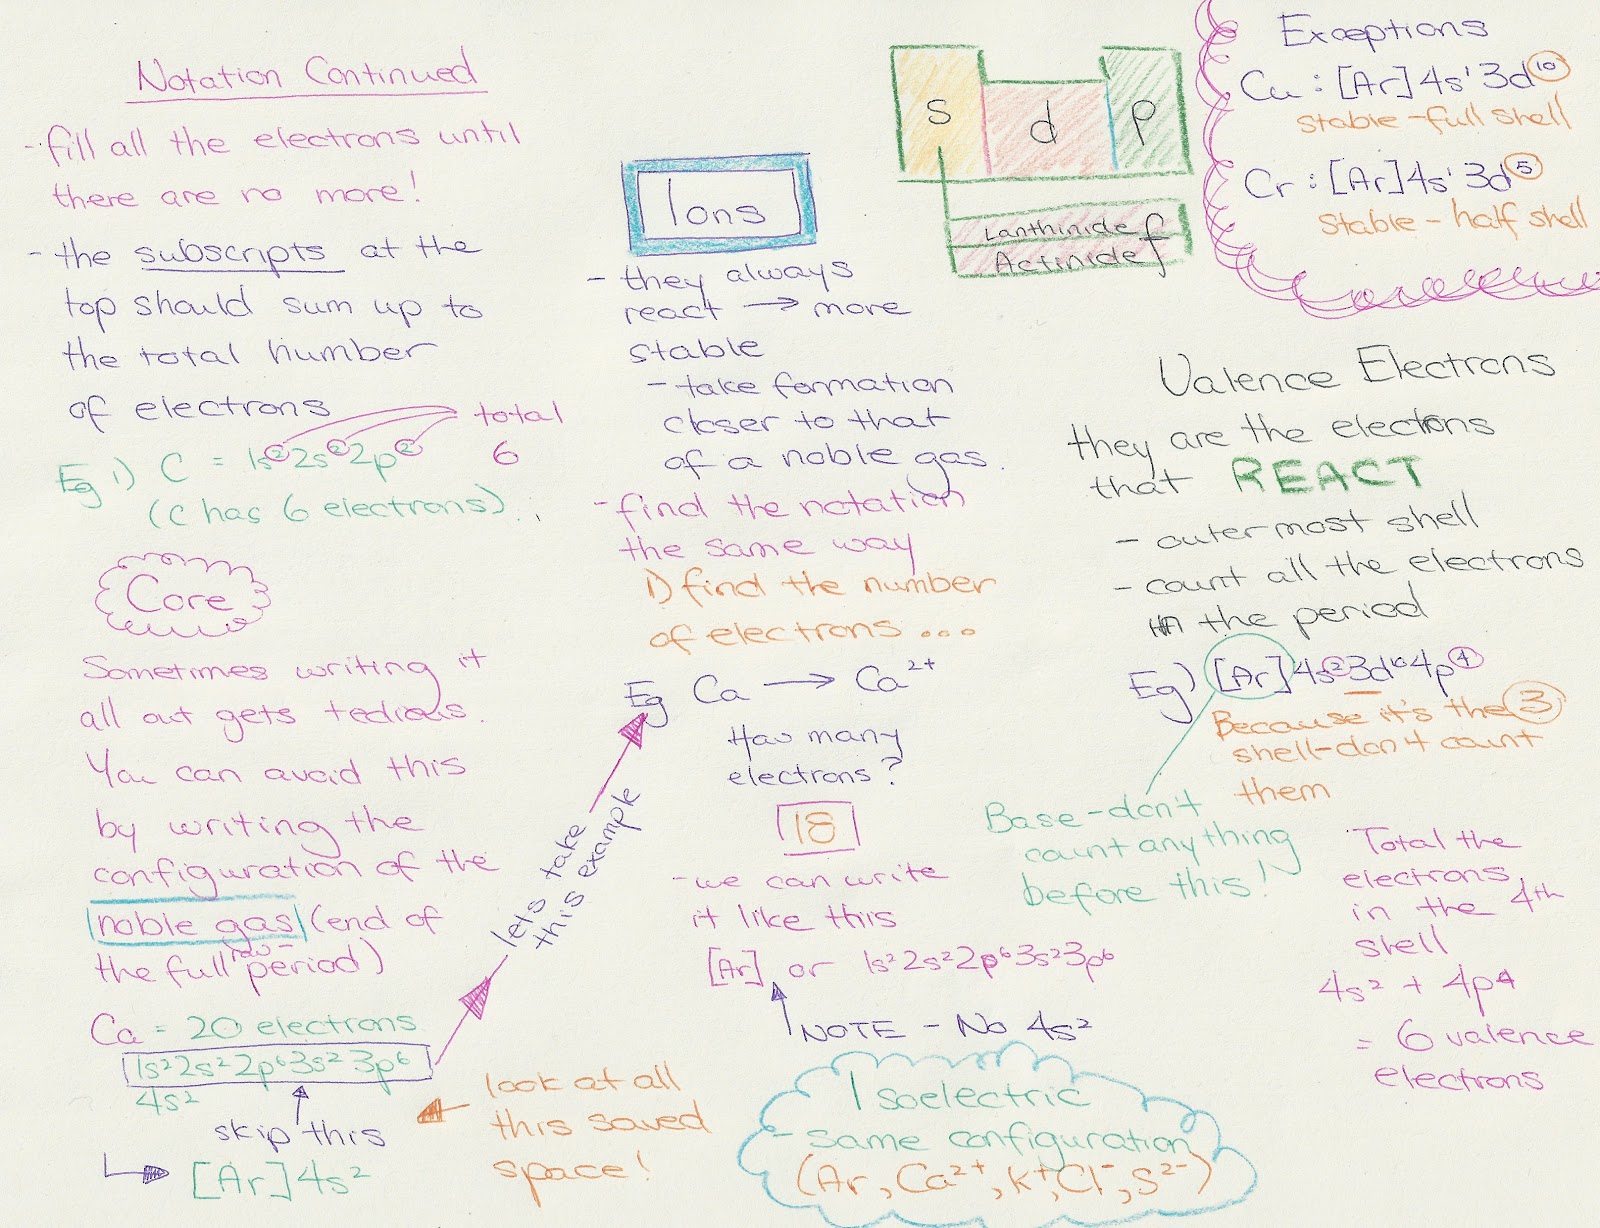 Notation Continued
- fill all the electrons until
there are no more!
- the subscripts at the
top should sum up to
the total number
of electrons
total
6
Eg 1) C = 1s²2s²2p²
(C has 6 electrons)
Core
Sometimes writing it
all out gets tedious.
You can avoid this
by writing the
configuration of the
noble gas (end of
the full period)
row
Ca = 20 electrons
1s²2s²2p⁶3s²3p⁶
4s²
skip this
[Ar]4s²
look at all
this saved
space!
lets take
this example
Ions
- they always
react → more
stable
- take formation
closer to that
of a noble gas.
- find the notation
the same way
1) find the number
of electrons ...
Eg Ca → Ca²⁺
How many
electrons?
18
- we can write
it like this
[Ar] or 1s²2s²2p⁶3s²3p⁶
NOTE - No 4s²
Isoelectric
- same configuration
(Ar, Ca²⁺, K⁺, Cl⁻, S²⁻)
s
d
p
Lanthinide f
Actinide f
Exceptions
Cu : [Ar]4s¹3d¹⁰
stable - full shell
Cr : [Ar]4s¹3d⁵
stable - half shell
Valence Electrons
they are the electrons
that REACT
- outermost shell
- count all the electrons
in the period
Eg) [Ar]4s²3d¹⁰4p⁴
Because it's the 3
shell-don't count
them
Base-don't
count anything
before this!
Total the
electrons
in the 4th
shell
4s² + 4p⁴
= 6 valence
electrons